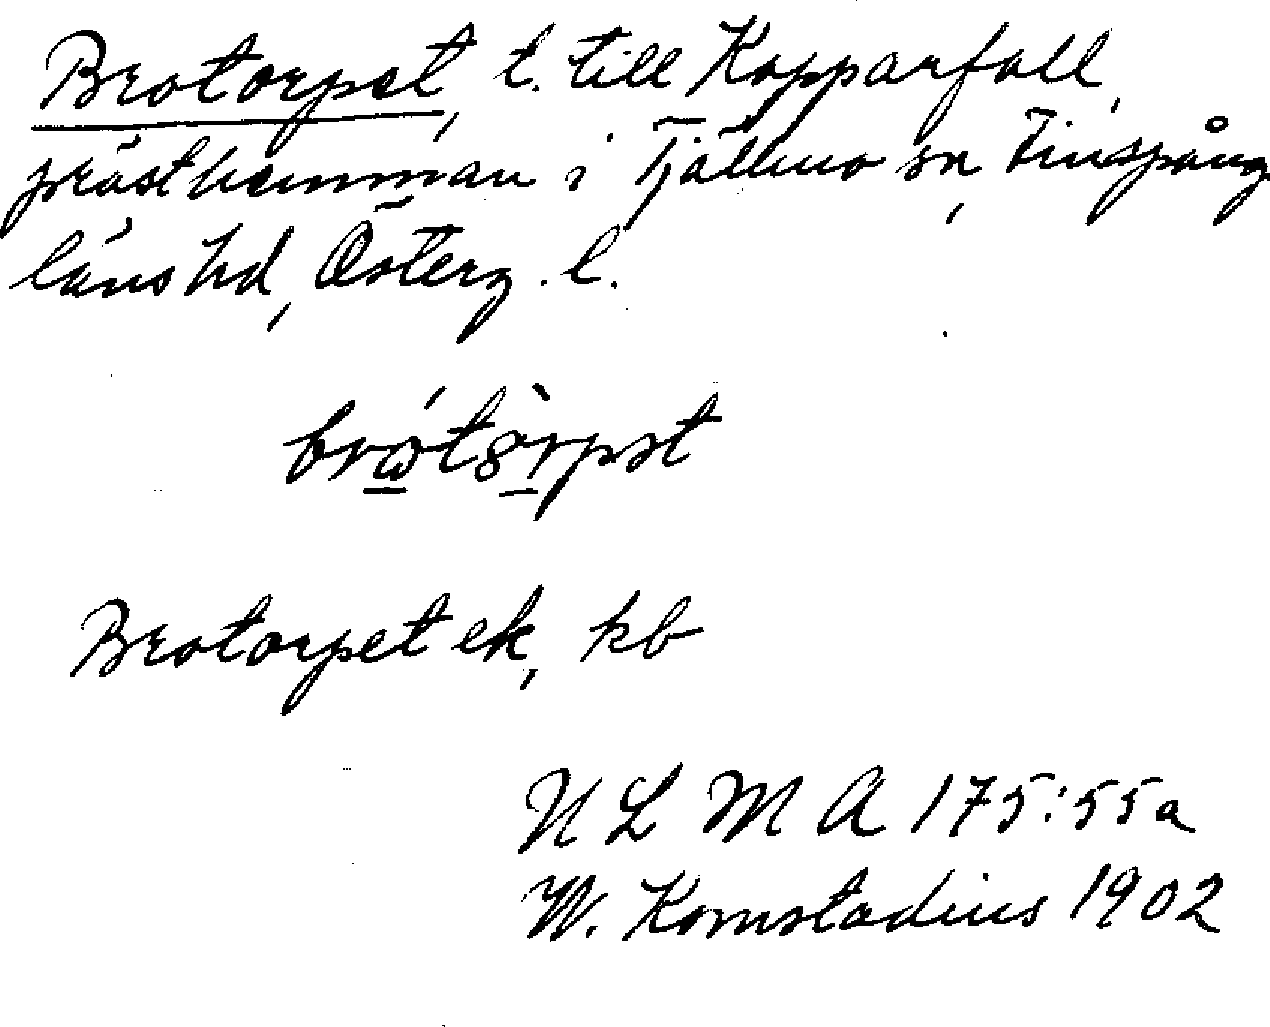 Brotorpet, t. till Kopparfall,
prästhemman i Tjällmo sn, Finspång
läns hd, Österg. l.
Brotorpet ek, kb
ULMA 175:55a
W. Komstadius 1902